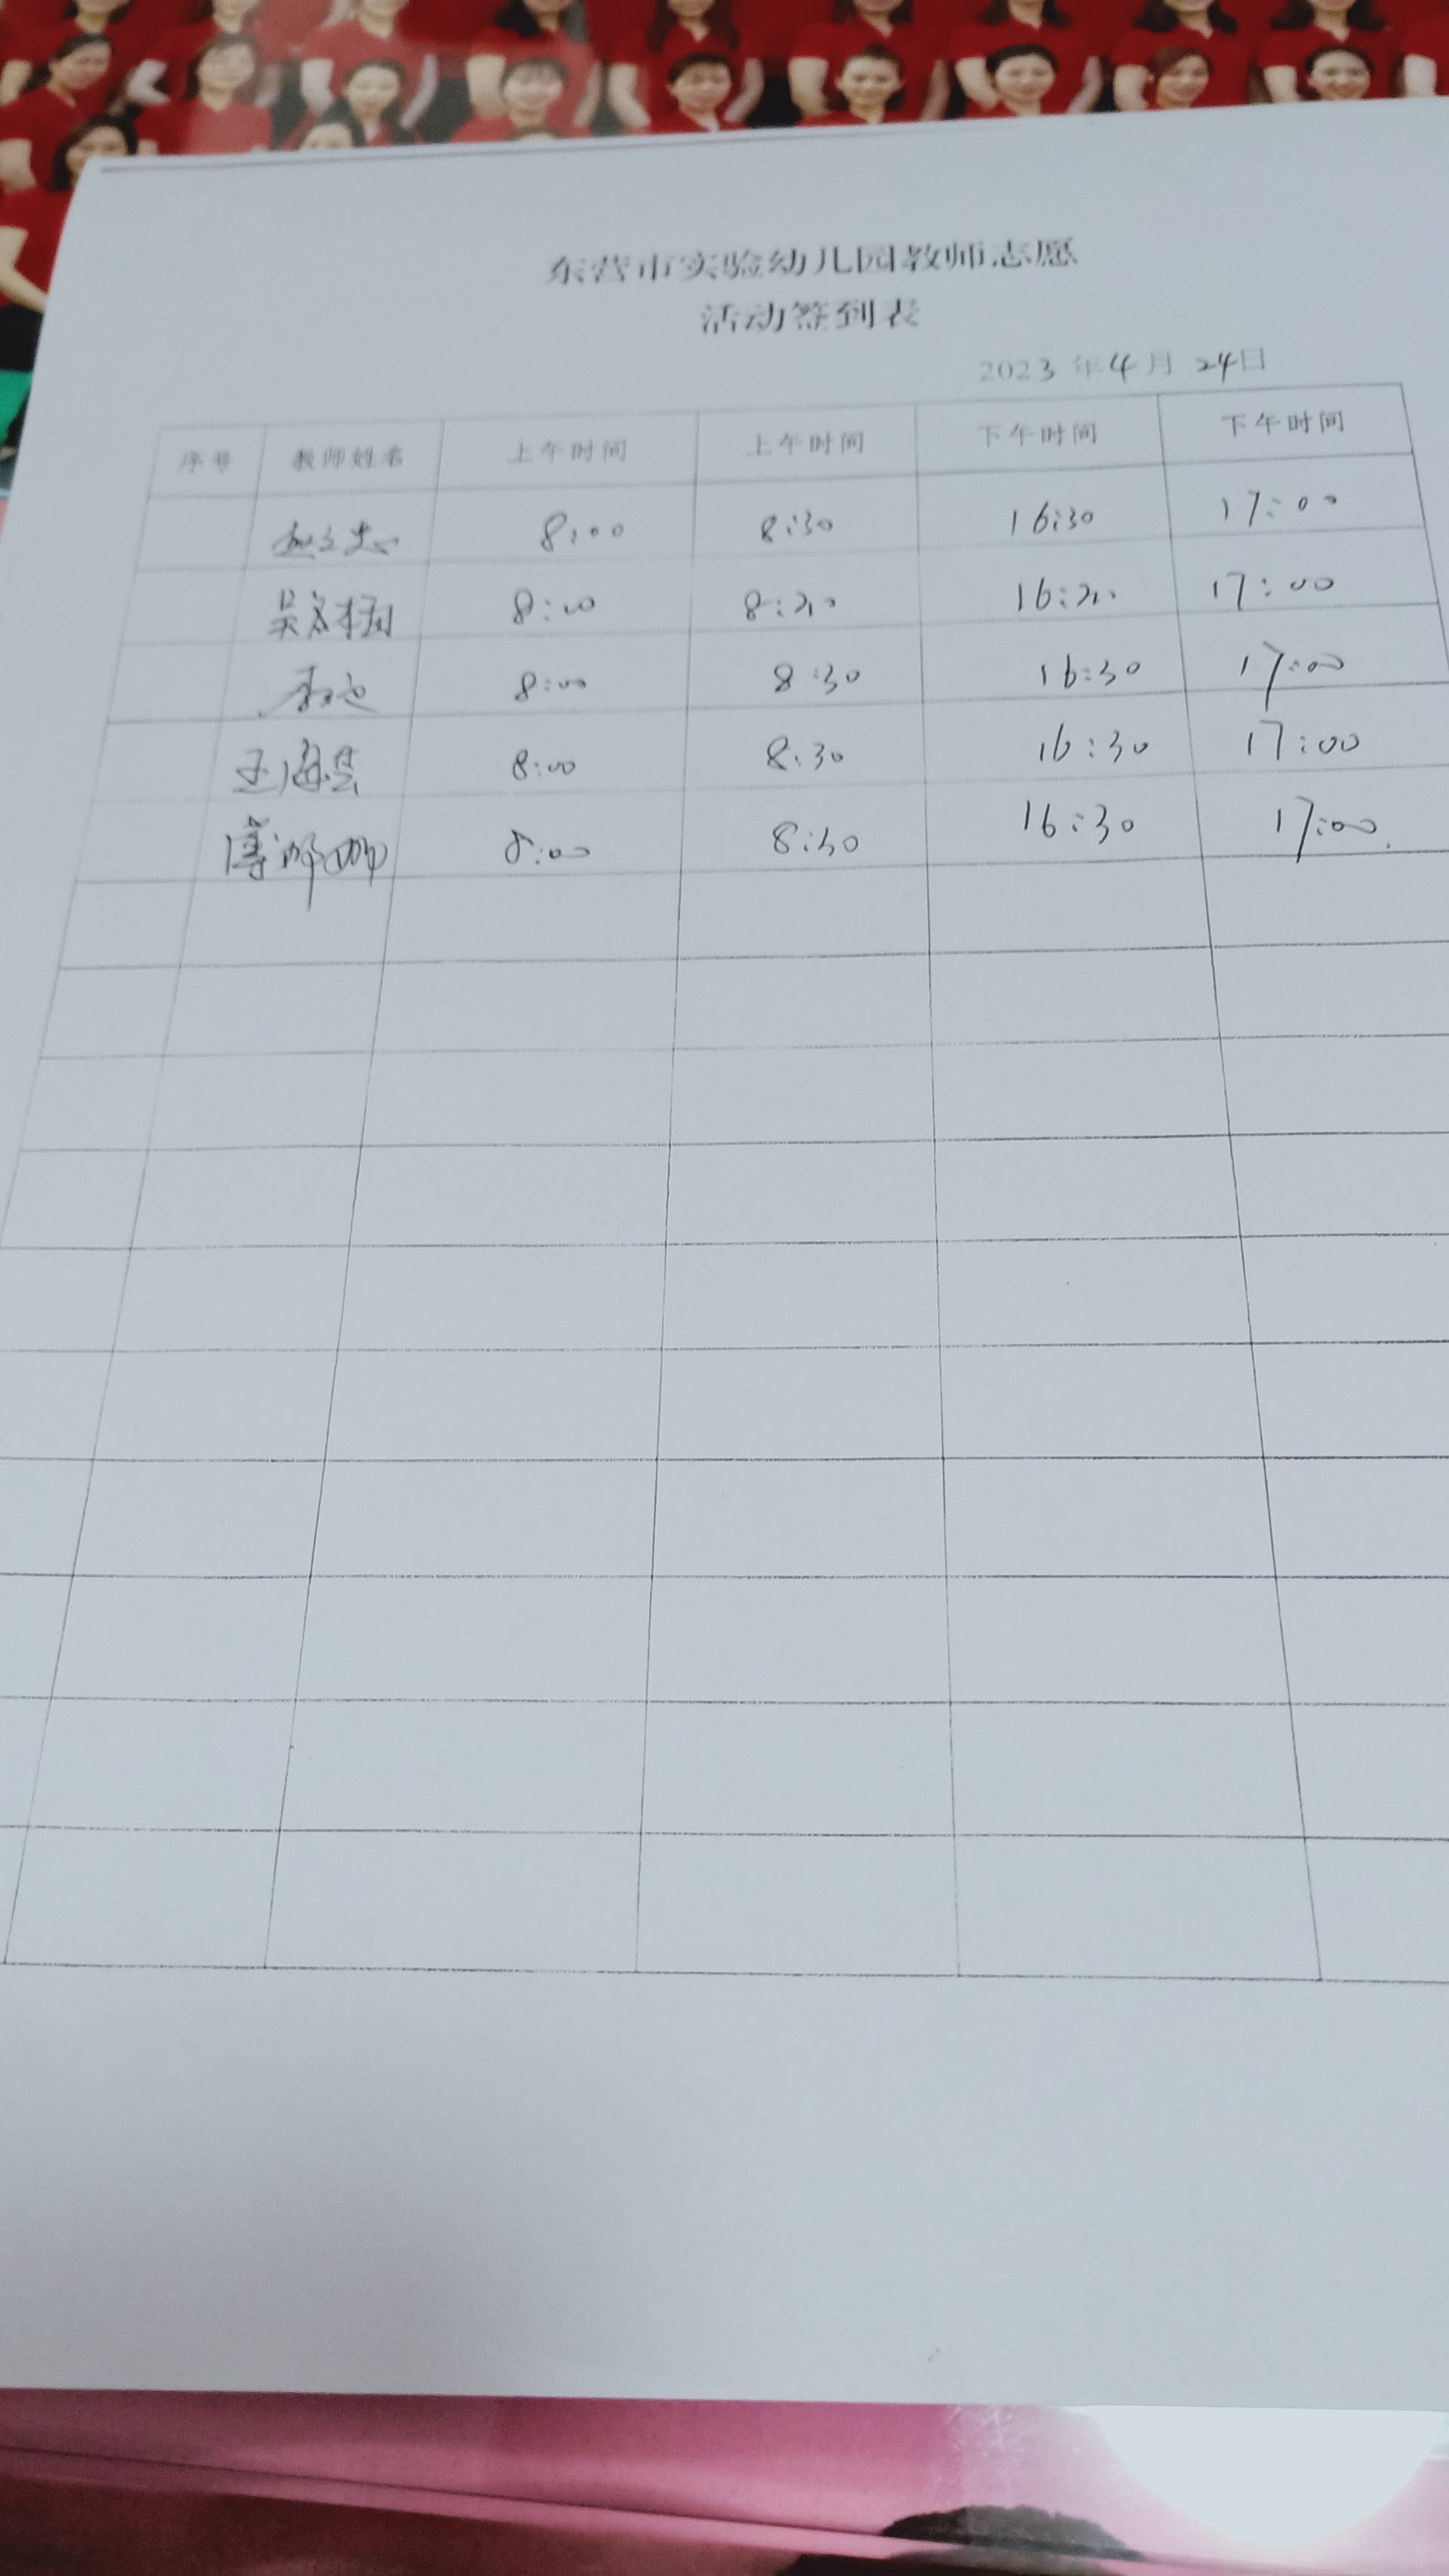 东营市实验幼儿园教师志愿
活动签到表
2023 年 4 月 24日
序号 教师姓名 上午时间 上午时间 下午时间 下午时间
8:00 8:30 16:30 17:00
8:00 8:30 16:30 17:00
8:00 8:30 16:30 17:00
8:00 8:30 16:30 17:00
8:00 8:30 16:30 17:00